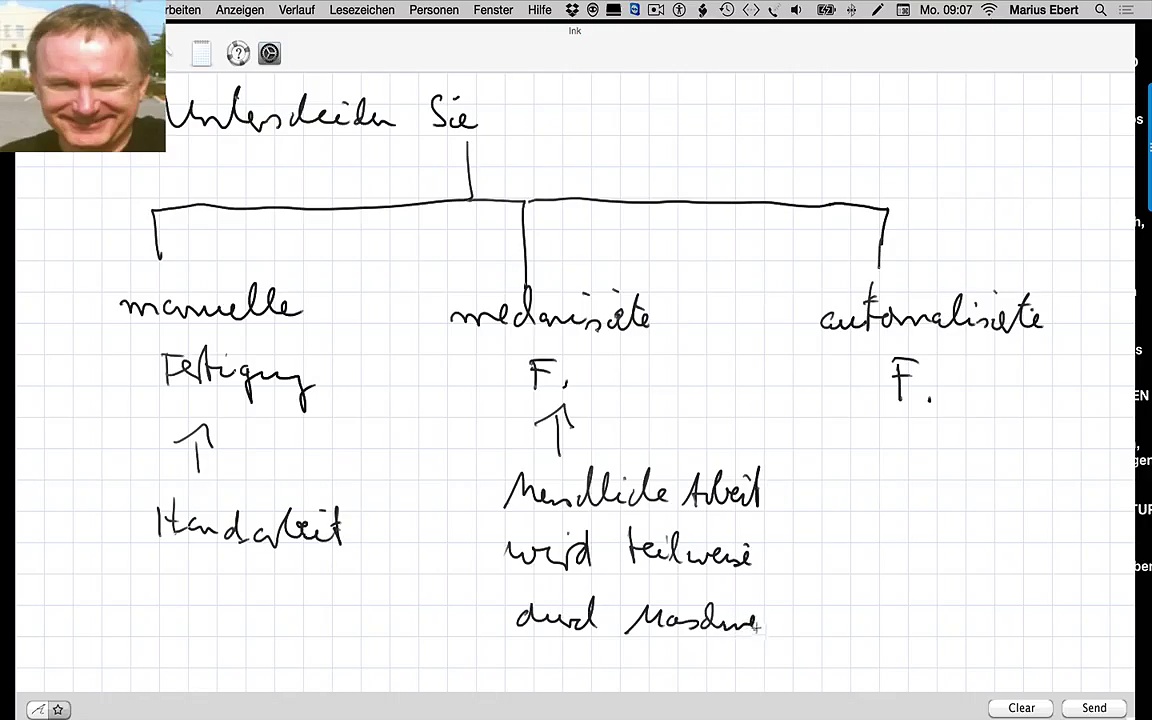 rbeiten Anzeigen Verlauf Lesezeichen Personen Fenster Hilfe Mo. 09:07 Marius Ebert
Ink
Unterscheiden Sie
manuelle mechanisierte automalisierte
Fertigung F. F.
Handarbeit
Menschliche Arbeit
wird teilweise
durch Maschine
Clear Send